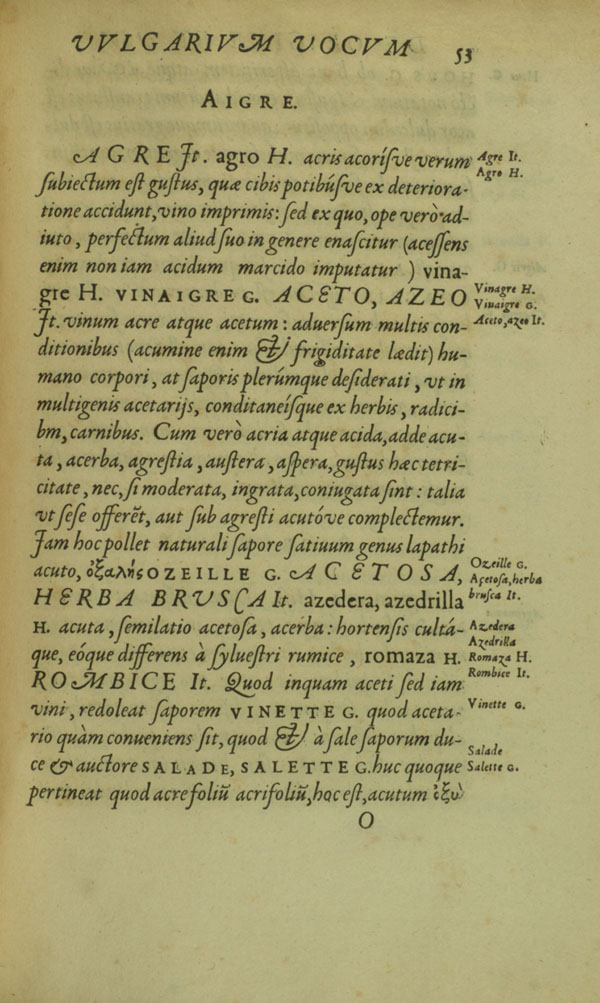 VVLGARIVM VOCVM 53
AIGRE.
AGRE It. agro H. acris acorisve verum
subiectum est gustus, quæ cibis potibúsve ex deteriora-
tione accidunt, vino imprimis: sed ex quo, ope verò ad-
iuto, perfectum aliud suo in genere enascitur (acessens
enim non iam acidum marcido imputatur ) vina-
gre H. VINAIGRE G. ACETO, AZEO
It. vinum acre atque acetum: aduersum multis con-
ditionibus (acumine enim & frigiditate lædit) hu-
mano corpori, at saporis plerumque desiderati, vt in
multigenis acetarijs, conditaneísque ex herbis, radici-
bm, carnibus. Cum verò acria atque acida, adde acu-
ta, acerba, agrestia, austera, aspera, gustus hæc tetri-
citate, nec, si moderata, ingrata, coniugata sint: talia
vt sese offerẽt, aut sub agresti acutóve complectemur.
Iam hoc pollet naturali sapore satiuum genus lapathi
acuto, ὀξαλὴς OZEILLE G. ACETOSA,
HERBA BRVSCA It. azedera, azedrilla
H. acuta, semilatio acetosa, acerba: hortensis cultá-
que, eóque differens à syluestri rumice, romaza H.
ROMBICE It. Quod inquam aceti sed iam
vini, redoleat saporem VINETTE G. quod aceta-
rio quàm conueniens sit, quod & à sale saporum du-
ce & auctore SALADE, SALETTE G. huc quoque
pertineat quod acrefoliũ acrifoliũ, hoc est, acutum ὀξὺ
O
Agre It.
Agro H.
Vinagre H.
Vinaigre G.
Aceto, azeo It.
Ozeille G.
Acetosa, herba
brusca It.
Azedera
Azedrilla
Romaza H.
Rombice It.
Vinette G.
Salade
Salette G.